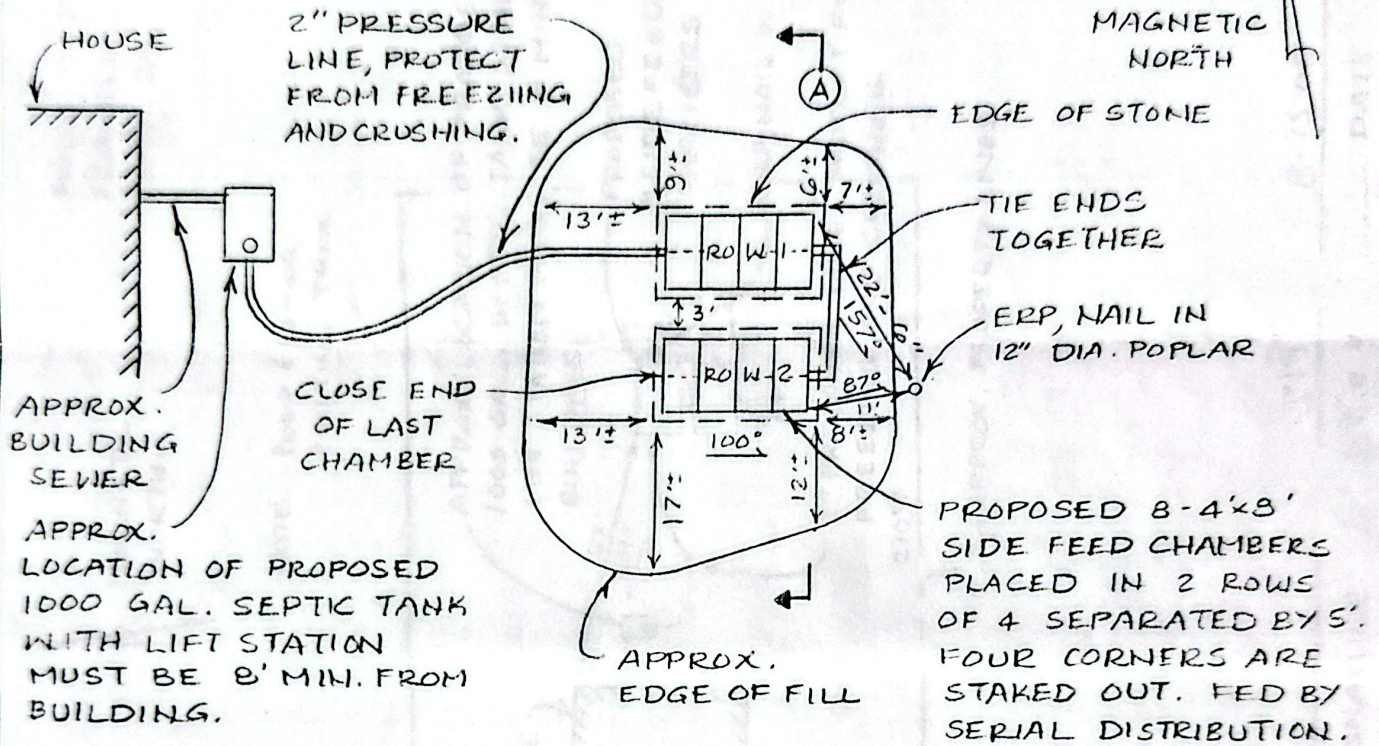 HOUSE
2" PRESSURE
LINE, PROTECT
FROM FREEZIING
AND CRUSHING.
A
MAGNETIC
NORTH
EDGE OF STONE
9'±
6'±
7'±
13'±
ROW-1
TIE ENDS
TOGETHER
22'-
157°
3'
ERP, NAIL IN
12" DIA. POPLAR
ROW-2
87°
11'
CLOSE END
OF LAST
CHAMBER
13'±
100°
8'±
17'±
12'±
APPROX.
BUILDING
SEWER
APPROX.
LOCATION OF PROPOSED
1000 GAL. SEPTIC TANK
WITH LIFT STATION
MUST BE 8' MIN. FROM
BUILDING.
APPROX.
EDGE OF FILL
PROPOSED 8-4'x8'
SIDE FEED CHAMBERS
PLACED IN 2 ROWS
OF 4 SEPARATED BY 5'.
FOUR CORNERS ARE
STAKED OUT. FED BY
SERIAL DISTRIBUTION.